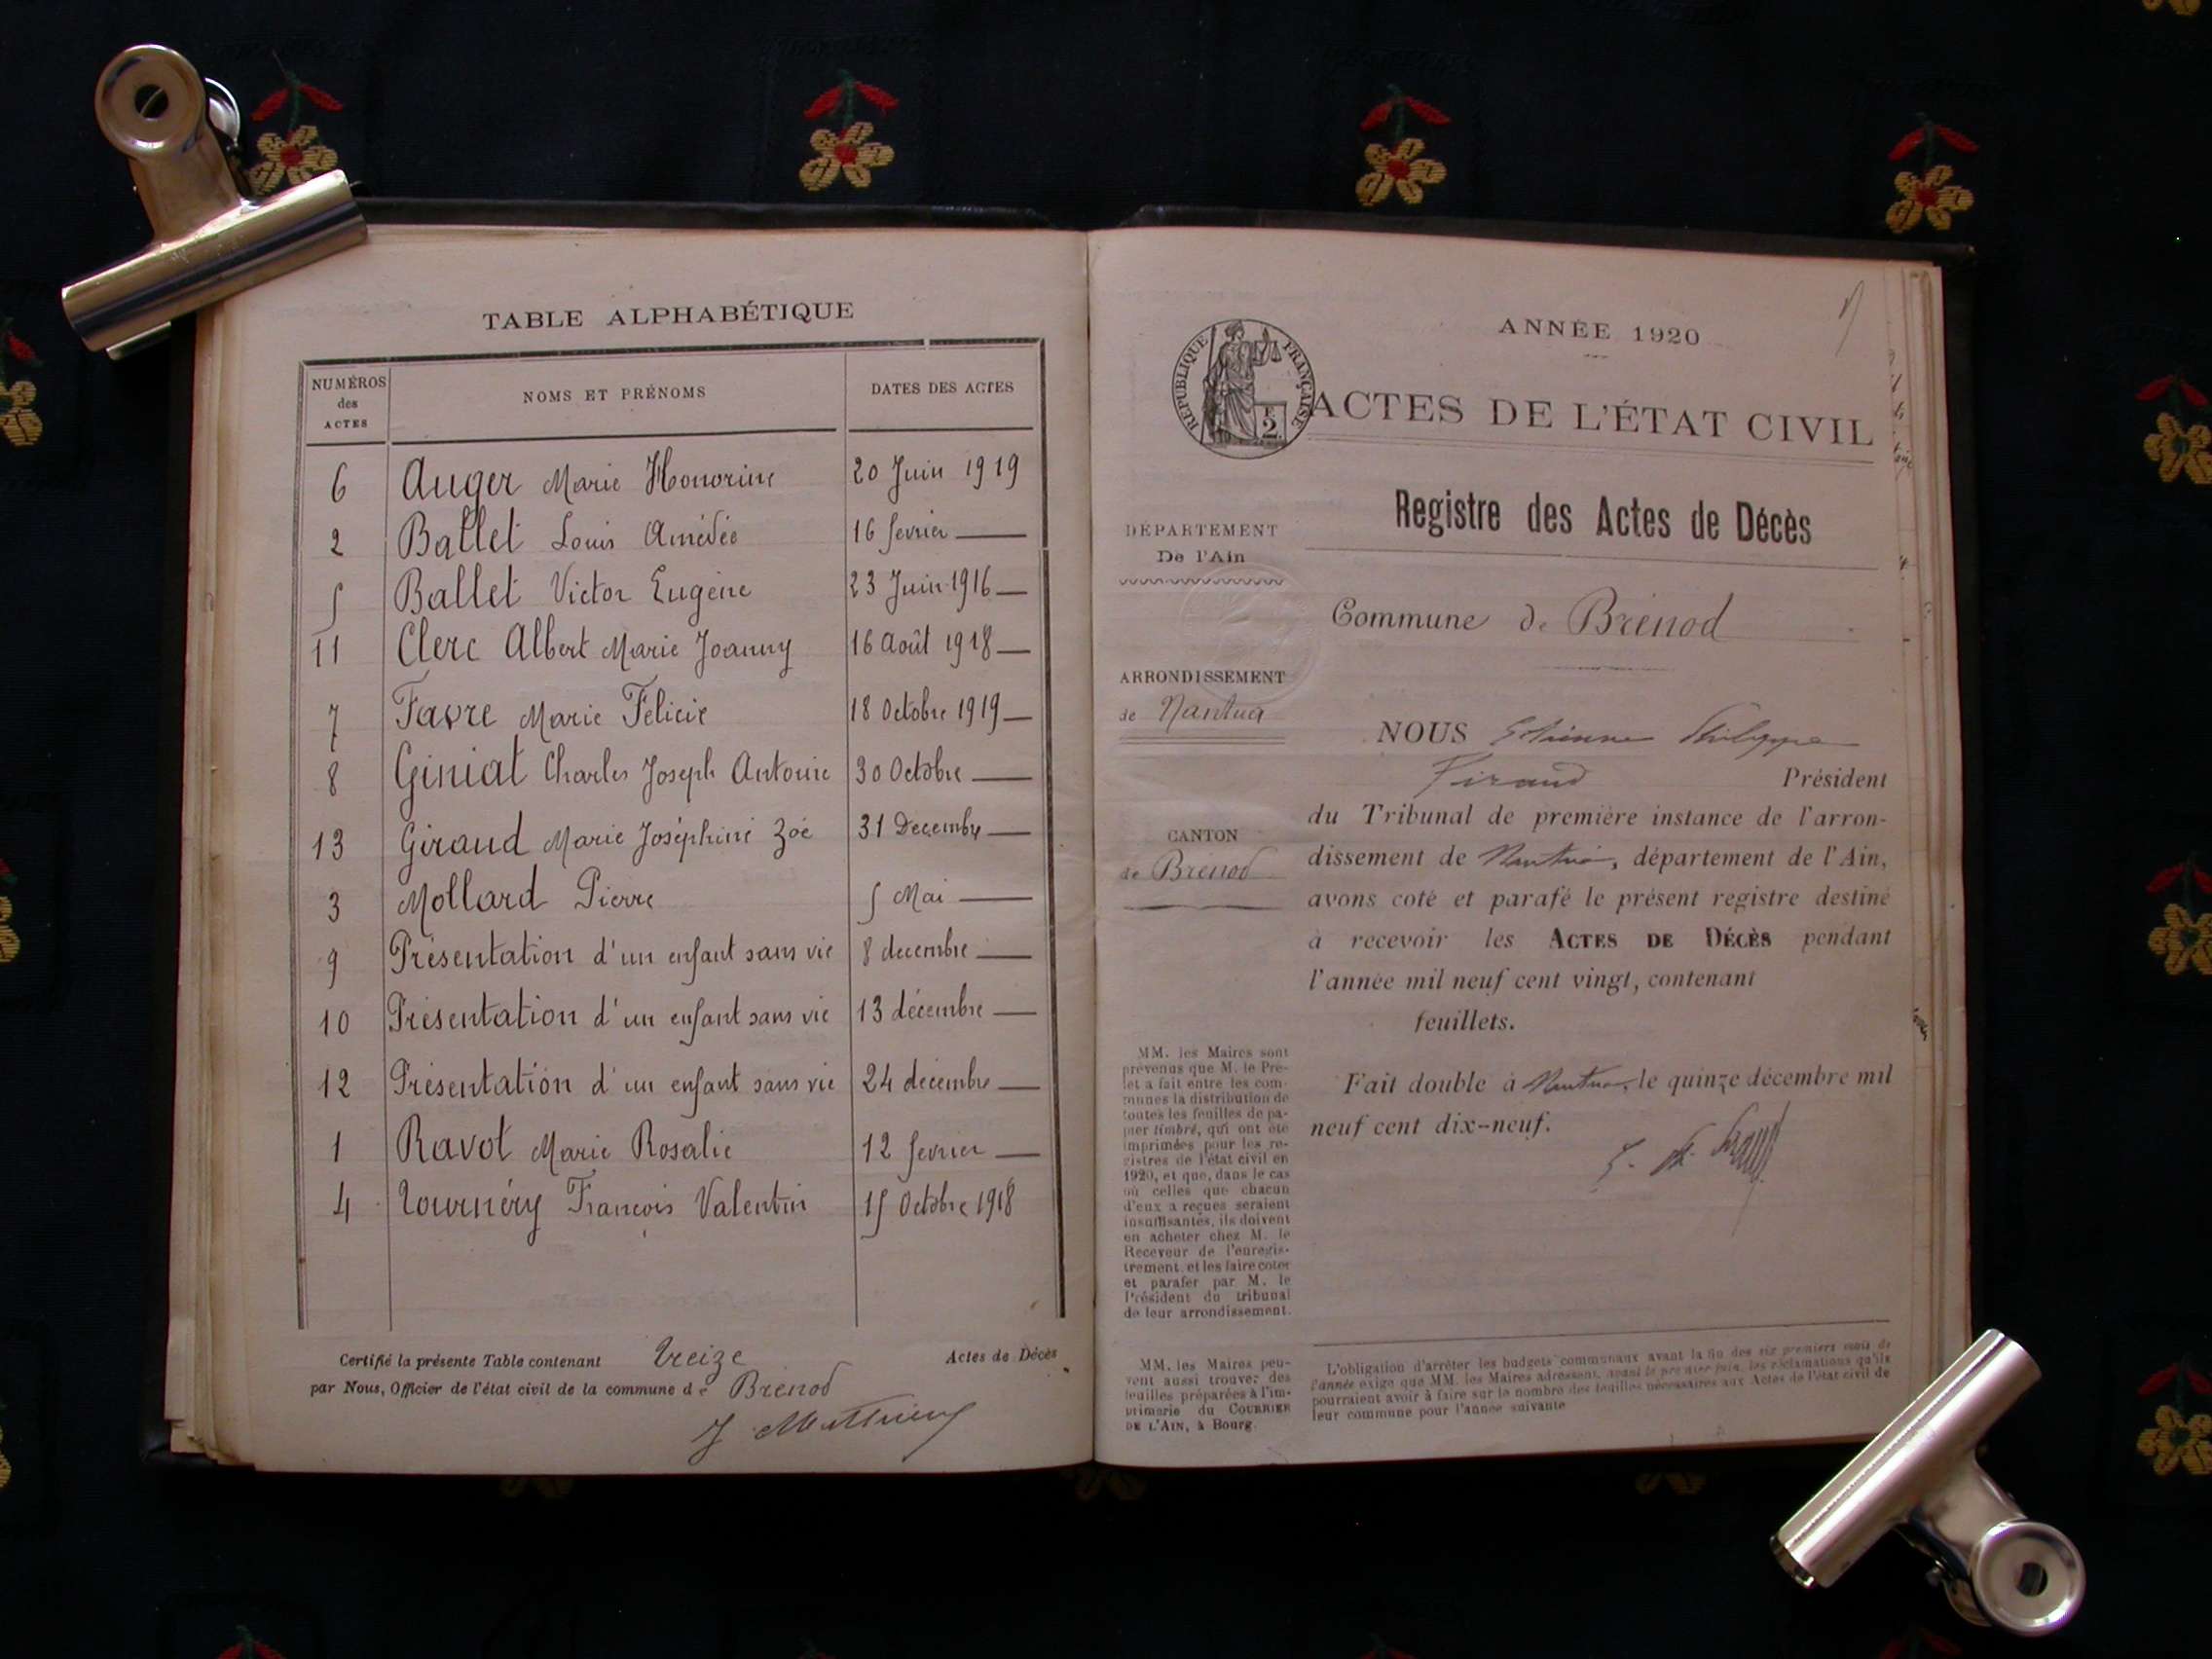 TABLE ALPHABÉTIQUE
NUMÉROS des ACTES NOMS ET PRÉNOMS DATES DES ACTES
6 Auger Marie Honorine 20 Juin 1919
2 Ballet Louis Amédée 16 fevrier —
5 Ballet Victor Eugène 23 Juin 1916 —
11 Clerc Albert Marie Joanny 16 Août 1918 —
7 Favre Marie Félicie 18 Octobre 1919 —
8 Giniat Charles Joseph Antoine 30 Octobre —
13 Giraud Marie Joséphine Zoé 31 Decembre —
3 Mollard Pierre 5 Mai —
9 Présentation d'un enfant sans vie 8 decembre —
10 Présentation d'un enfant sans vie 13 décembre —
12 Présentation d'un enfant sans vie 24 décembre —
1 Ravot Marie Rosalie 12 fevrier —
4 Tournéry François Valentin 15 Octobre 1918
Certifié la présente Table contenant Treize Actes de Décès
par Nous, Officier de l'état civil de la commune de Brénod
ANNÉE 1920
RÉPUBLIQUE FRANÇAISE
2
ACTES DE L'ÉTAT CIVIL
Registre des Actes de Décès
DÉPARTEMENT
De l'Ain
Commune de Brénod
ARRONDISSEMENT
de Nantua
CANTON
de Brénod
NOUS Etienne Philippe
Président
du Tribunal de première instance de l'arron-
dissement de Nantua, département de l'Ain,
avons coté et parafé le présent registre destiné
à recevoir les ACTES DE DÉCÈS pendant
l'année mil neuf cent vingt, contenant
feuillets.
Fait double à Nantua, le quinze décembre mil
neuf cent dix-neuf.
MM. les Maires sont
prévenus que M. le Pré-
fet a fait entre les com-
munes la distribution de
toutes les feuilles de pa-
pier timbré, qui ont été
imprimées pour les re-
gistres de l'état civil en
1920, et que, dans le cas
où celles que chacun
d'eux a reçues seraient
insuffisantes, ils doivent
en acheter chez M. le
Receveur de l'enregis-
trement, et les faire coter
et parafer par M. le
Président du tribunal
de leur arrondissement.
MM. les Maires peu-
vent aussi trouver des
feuilles préparées à l'im-
primerie du COURRIER
DE L'AIN, à Bourg.
L'obligation d'arrêter les budgets communaux avant la fin des six premiers mois de
l'année exige que MM. les Maires adressent, avant le premier juin, les réclamations qu'ils
pourraient avoir à faire sur le nombre des feuilles nécessaires aux Actes de l'état civil de
leur commune pour l'année suivante